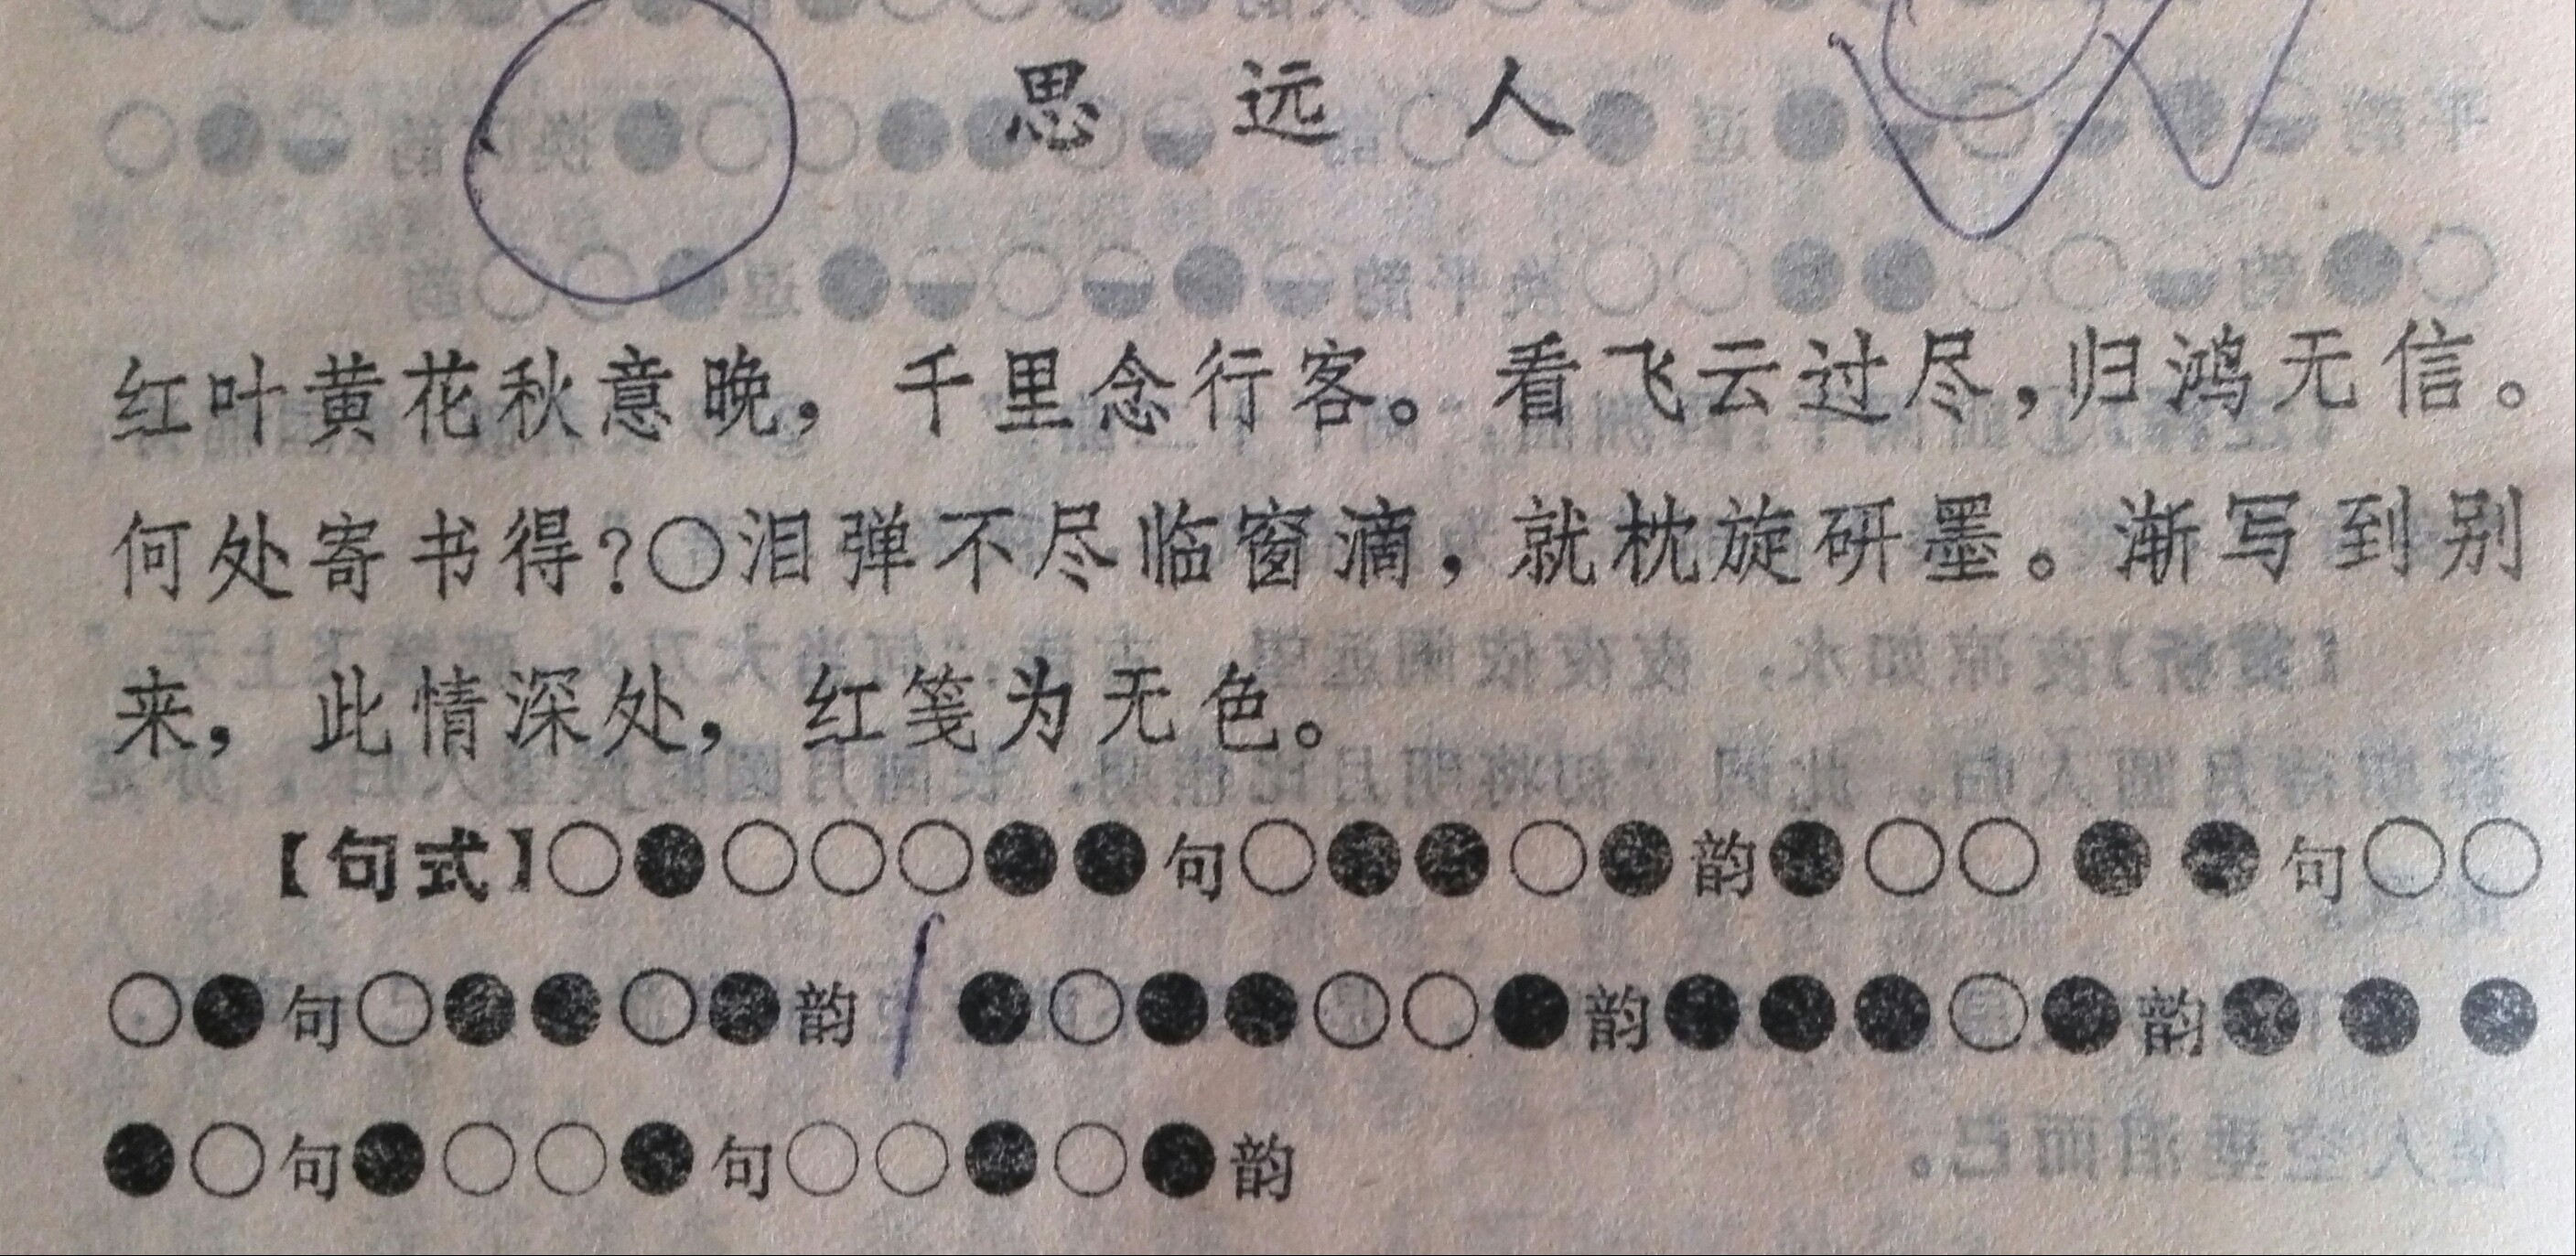 思远人
红叶黄花秋意晚，千里念行客。看飞云过尽，归鸿无信。
何处寄书得？○泪弹不尽临窗滴，就枕旋研墨。渐写到别
来，此情深处，红笺为无色。
【句式】○●○○○●●句○●●○●韵●○○●●句○○
○●句○●●○●韵 ●○●●○○●韵●●●○●韵●●●
●○句●○○●句○○●○●韵